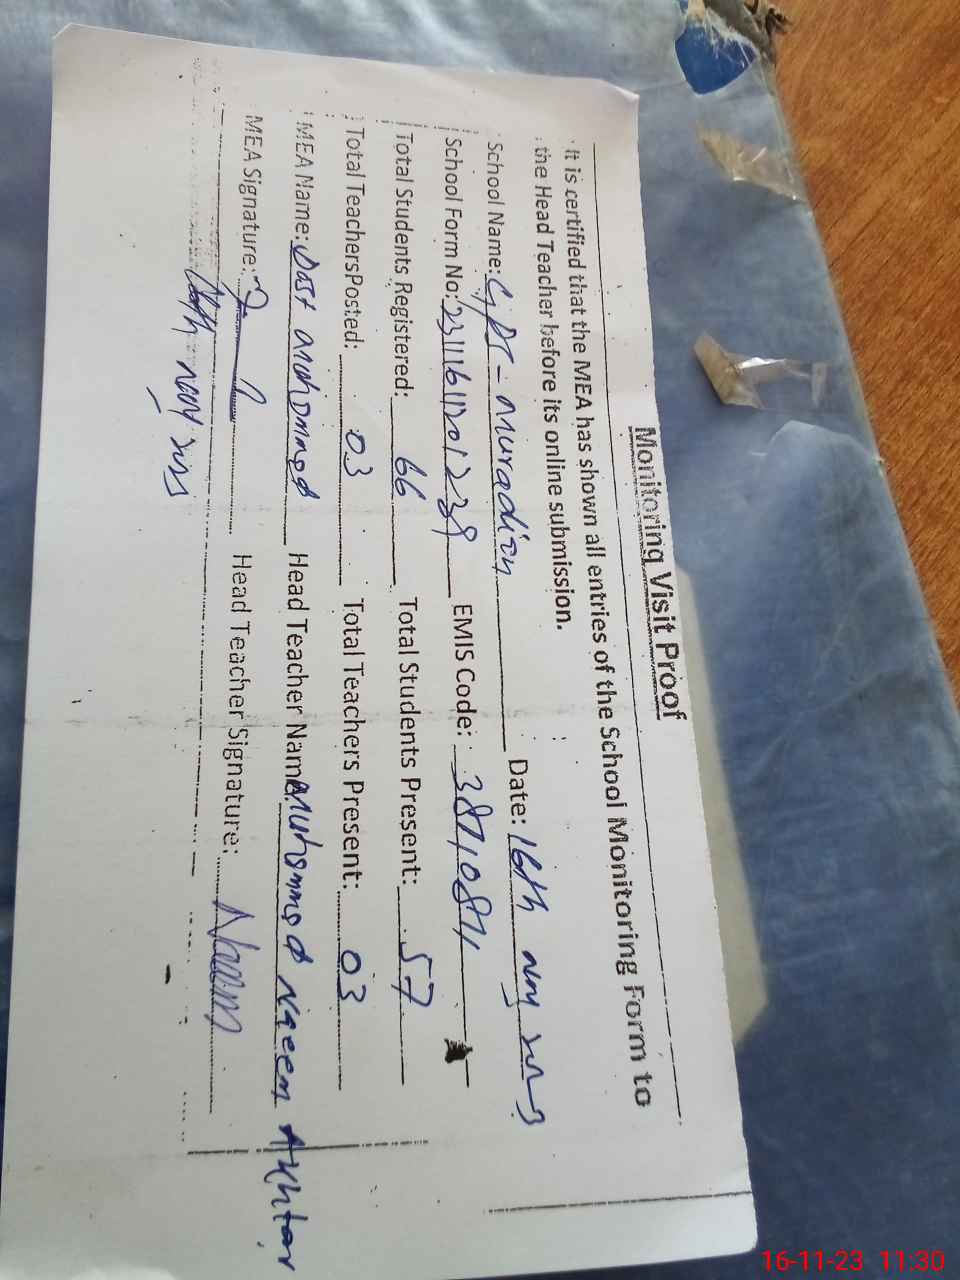 Monitoring Visit Proof
It is certified that the MEA has shown all entries of the School Monitoring Form to
the Head Teacher before its online submission.
School Name: GPS - Muradian Date: 16th Nov 2023
School Form No: 23111611201239 EMIS Code: 38710811
Total Students Registered: 66 Total Students Present: 57
Total TeachersPosted: 03 Total Teachers Present: 03
MEA Name: Dost Muhammad Head Teacher Name Muhammad Naeem Akhtar
MEA Signature: Head Teacher Signature: Naeem
16th Nov
16-11-23 11:30